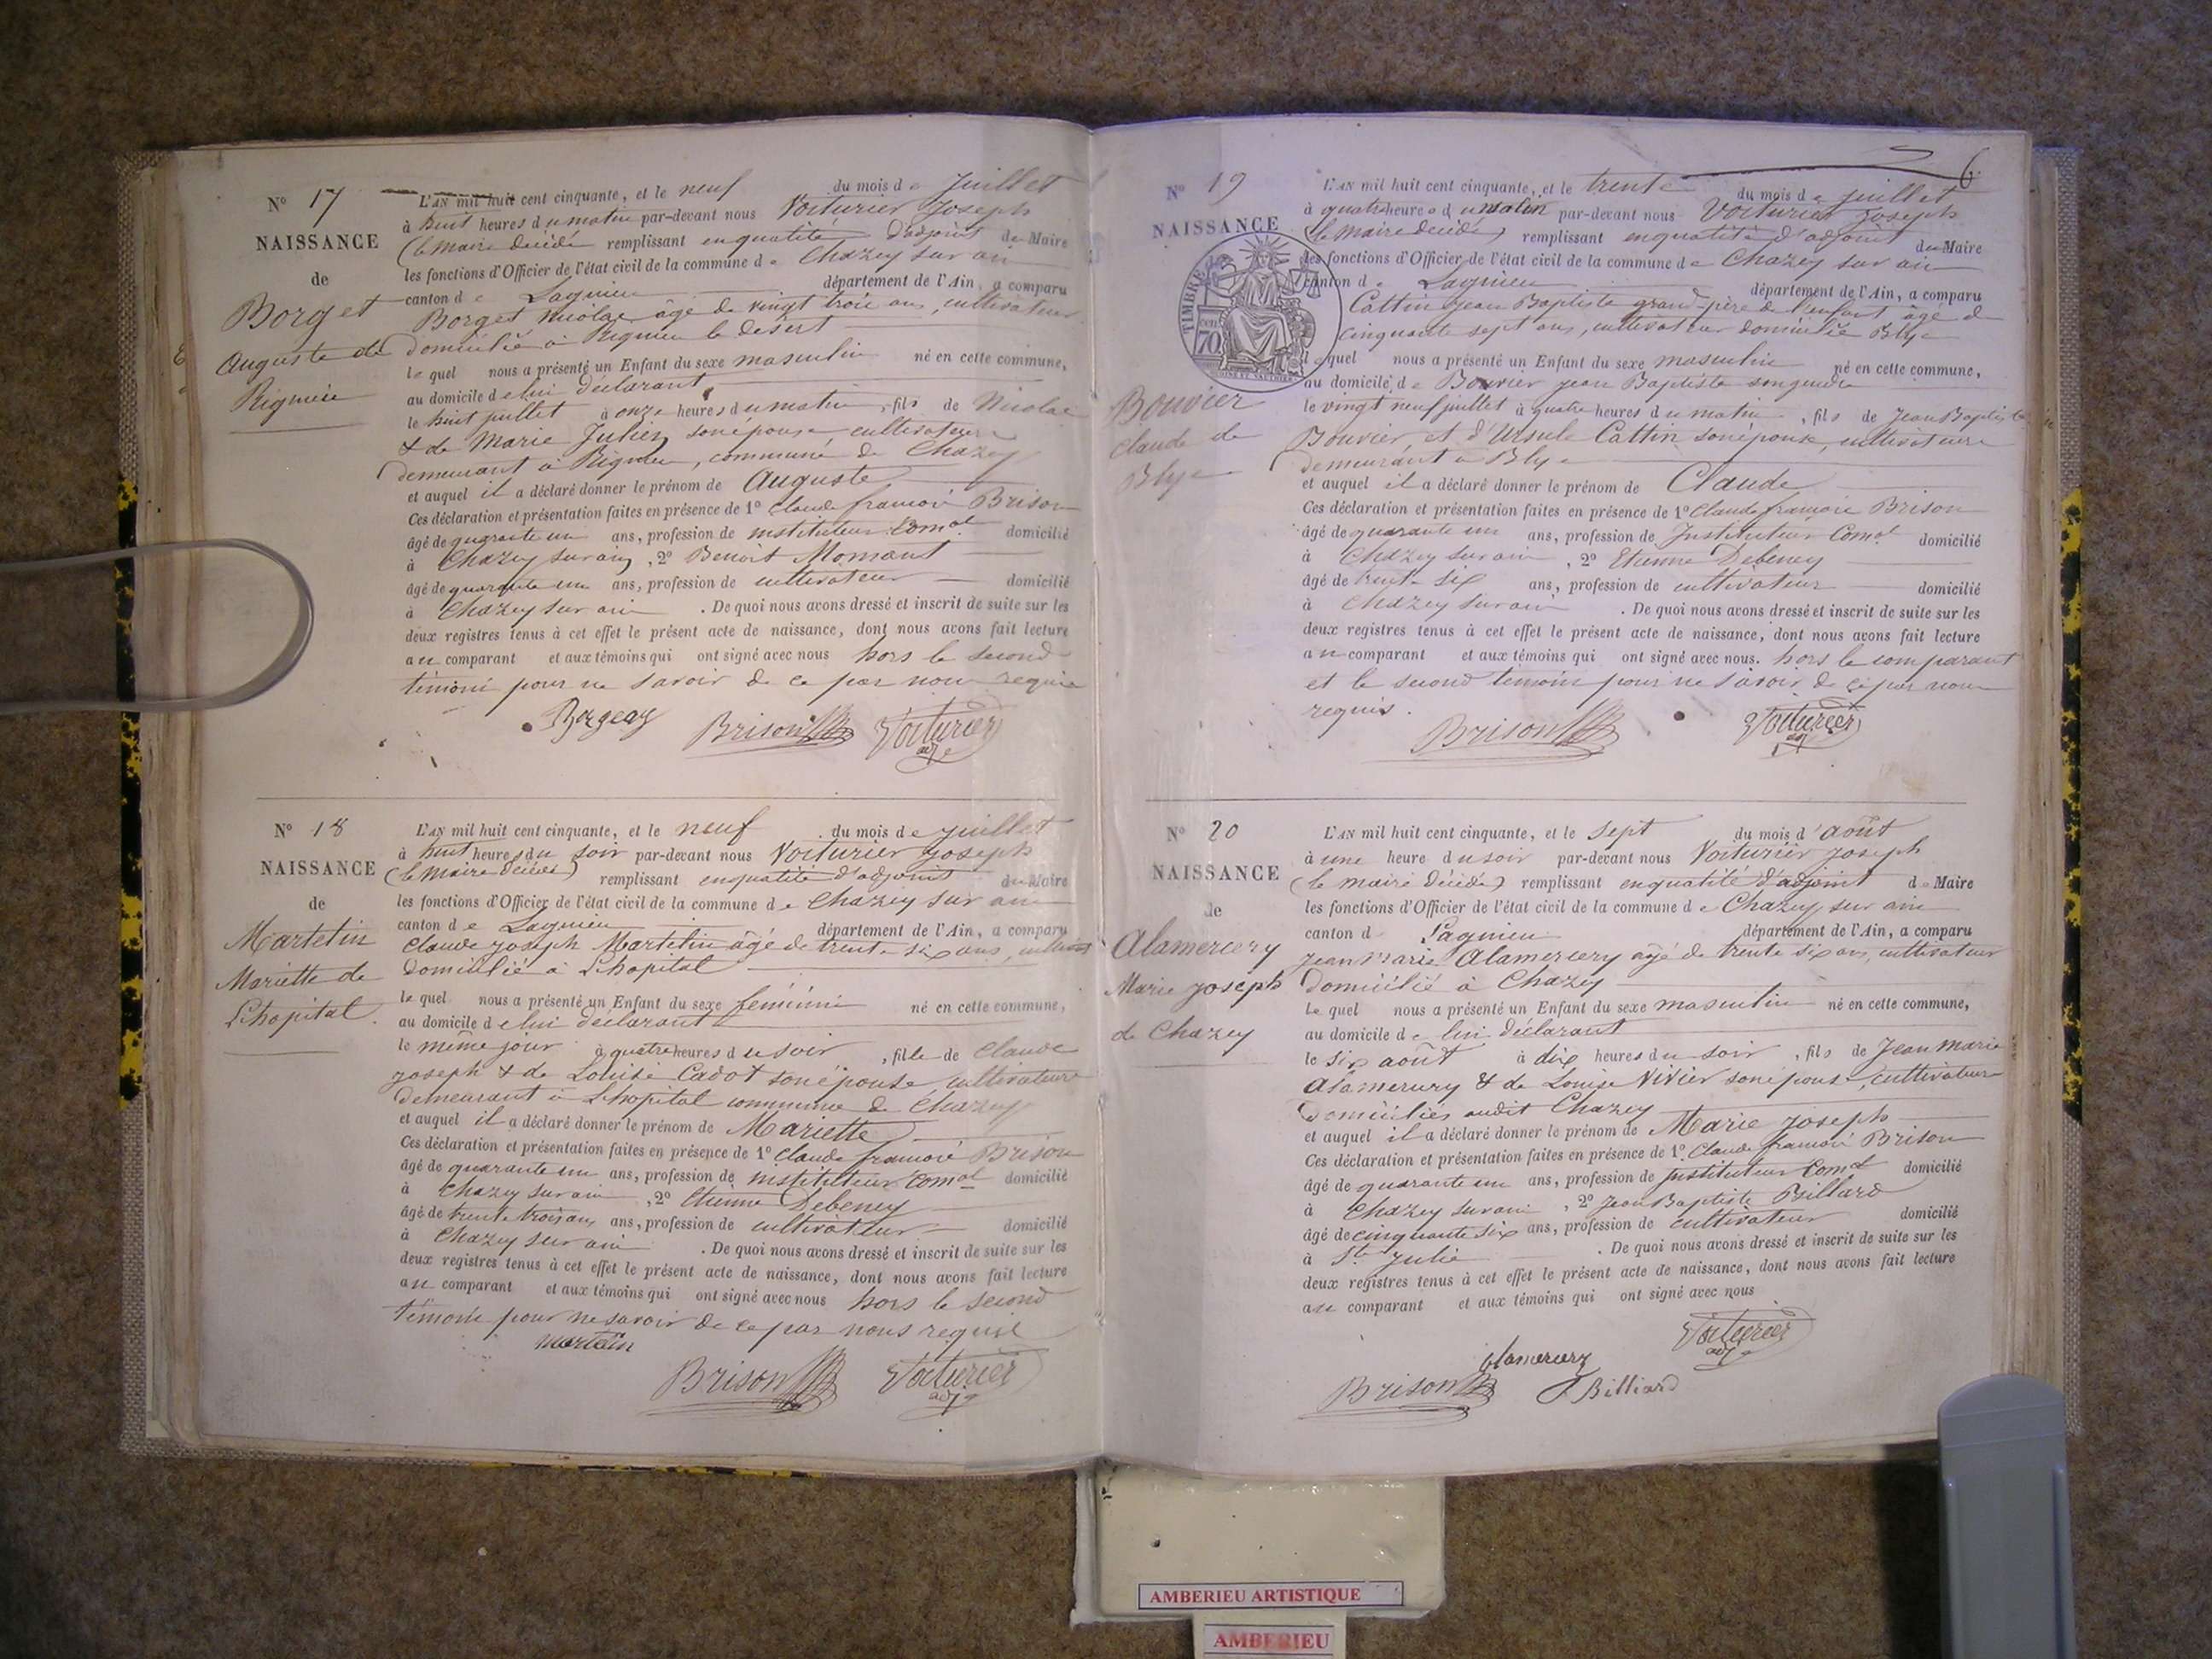 N° 17
NAISSANCE
de
Borget
Auguste de
Rignieu
L'AN mil huit cent cinquante, et le neuf du mois de Juillet
à huit heures du matin par-devant nous Voiturier Joseph
(le Maire décédé remplissant en qualité d'adjoint de Maire
les fonctions d'Officier de l'état civil de la commune de Chazey sur ain
canton de Lagnieu département de l'Ain, a comparu
Borget Nicolas âgé de vingt trois ans, cultivateur
domicilié à Rignieu le désert
lequel nous a présenté un Enfant du sexe masculin né en cette commune,
au domicile de lui déclarant
le huit juillet à onze heures du matin, fils de Nicolas
& de Marie Julien son épouse cultivateurs
demeurant à Rignieu, commune de Chazey
et auquel il a déclaré donner le prénom de Auguste
Ces déclaration et présentation faites en présence de 1° Claude françois Brison
âgé de quarante un ans, profession de instituteur Comal domicilié
à Chazey sur ain, 2° Benoit Momant
âgé de quarante un ans, profession de cultivateur domicilié
à Chazey sur ain. De quoi nous avons dressé et inscrit de suite sur les
deux registres tenus à cet effet le présent acte de naissance, dont nous avons fait lecture
au comparant et aux témoins qui ont signé avec nous hors le second
témoin pour ne savoir de ce par nous requis
Borgeay Brison Voiturier
adj
N° 18
NAISSANCE
de
Martelin
Mariette de
Lhopital
L'AN mil huit cent cinquante, et le neuf du mois de juillet
à huit heures du soir par-devant nous Voiturier Joseph
(le Maire décédé) remplissant en qualité d'adjoint de Maire
les fonctions d'Officier de l'état civil de la commune de Chazey sur ain
canton de Lagnieu département de l'Ain, a comparu
Claude Joseph Martelin âgé de trente six ans,
domicilié à Lhopital
lequel nous a présenté un Enfant du sexe féminin né en cette commune,
au domicile de lui déclarant
le même jour à quatre heures du soir, fille de Claude
Joseph & de Louise Cadot son épouse cultivateurs
demeurant à Lhopital commune de Chazey
et auquel il a déclaré donner le prénom de Mariette
Ces déclaration et présentation faites en présence de 1° Claude françois Brison
âgé de quarante un ans, profession de instituteur Comal domicilié
à Chazey sur ain, 2° Etienne Debeney
âgé de trente trois ans ans, profession de cultivateur domicilié
à Chazey sur ain. De quoi nous avons dressé et inscrit de suite sur les
deux registres tenus à cet effet le présent acte de naissance, dont nous avons fait lecture
au comparant et aux témoins qui ont signé avec nous hors le second
témoin pour ne savoir de ce par nous requis
Brison Voiturier
adj
6
N° 19
NAISSANCE
TIMBRE
70
Bouvier
Claude de
Blye
L'AN mil huit cent cinquante, et le trente du mois de juillet
à quatre heures du matin par-devant nous Voiturier Joseph
(le Maire décédé) remplissant en qualité d'adjoint de Maire
les fonctions d'Officier de l'état civil de la commune de Chazey sur ain
canton de Lagnieu département de l'Ain, a comparu
Cattin Jean Baptiste grand-père de l'enfant âgé de
cinquante sept ans, cultivateur domicilié Blye
lequel nous a présenté un Enfant du sexe masculin né en cette commune,
au domicile de Bouvier Jean Baptiste son gendre
le vingt neuf juillet à quatre heures du matin, fils de Jean Baptiste
Bouvier et d'Ursule Cattin son épouse, cultivateurs
demeurant à Blye
et auquel il a déclaré donner le prénom de Claude
Ces déclaration et présentation faites en présence de 1° Claude françois Brison
âgé de quarante un ans, profession de Instituteur Comal domicilié
à Chazey sur ain, 2° Etienne Debeney
âgé de trente six ans, profession de cultivateur domicilié
à Chazey sur ain. De quoi nous avons dressé et inscrit de suite sur les
deux registres tenus à cet effet le présent acte de naissance, dont nous avons fait lecture
au comparant et aux témoins qui ont signé avec nous. hors le comparant
et le second témoin pour ne savoir de ce par nous
requis.
Brison Voiturier
adj
N° 20
NAISSANCE
de
Alamercery
Marie Joseph
de Chazey
L'AN mil huit cent cinquante, et le sept du mois d'août
à une heure du soir par-devant nous Voiturier Joseph
(le maire décédé) remplissant en qualité d'adjoint de Maire
les fonctions d'Officier de l'état civil de la commune de Chazey sur ain
canton d Lagnieu département de l'Ain, a comparu
Jean Marie Alamercery âgé de trente six ans, cultivateur
domicilié à Chazey
lequel nous a présenté un Enfant du sexe masculin né en cette commune,
au domicile de lui déclarant
le six août à dix heures du soir, fils de Jean Marie
Alamercery & de Louise Vivier son épouse, cultivateurs
domiciliés audit Chazey
et auquel il a déclaré donner le prénom de Marie Joseph
Ces déclaration et présentation faites en présence de 1° Claude françois Brison
âgé de quarante un ans, profession de Instituteur Comal domicilié
à Chazey sur ain, 2° Jean Baptiste Billiard
âgé de cinquante six ans, profession de cultivateur domicilié
à Ste Julie. De quoi nous avons dressé et inscrit de suite sur les
deux registres tenus à cet effet le présent acte de naissance, dont nous avons fait lecture
au comparant et aux témoins qui ont signé avec nous
Voiturier
adj
alamercery
Brison J Billiard
AMBERIEU ARTISTIQUE
AMBERIEU